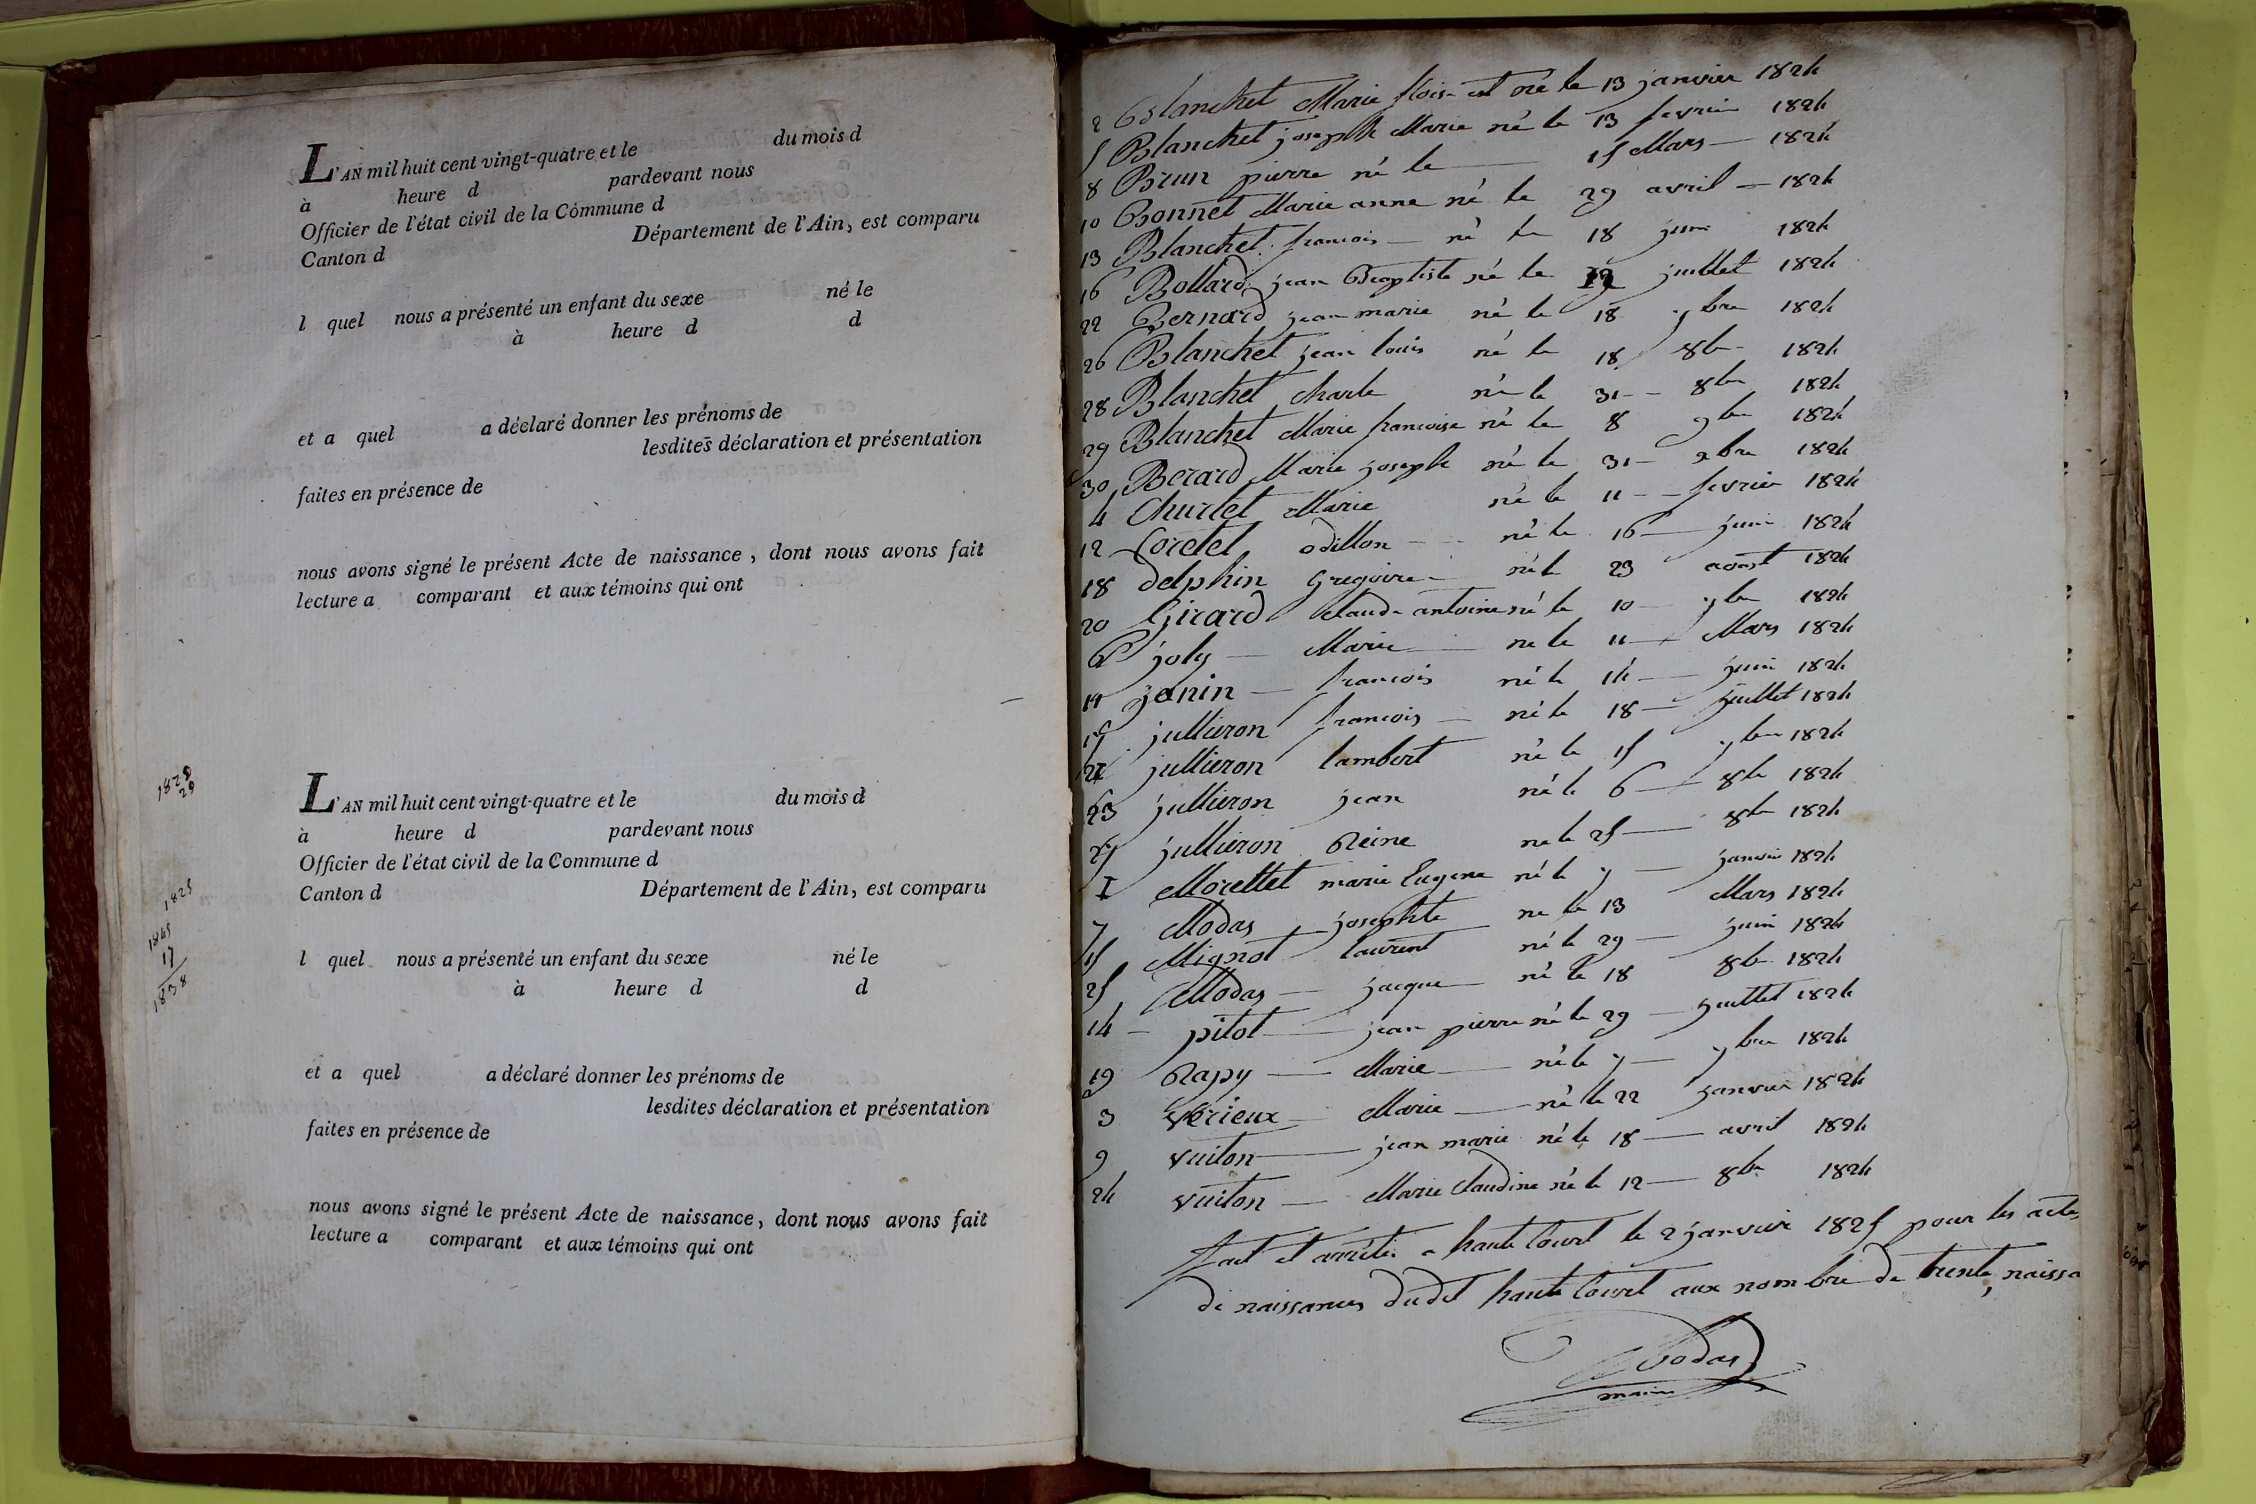 L'AN mil huit cent vingt-quatre et le du mois d
à heure d pardevant nous
Officier de l'état civil de la Commune d
Canton d Département de l'Ain, est comparu
l quel nous a présenté un enfant du sexe né le
à heure d d
et a quel a déclaré donner les prénoms de
lesdites déclaration et présentation
faites en présence de
nous avons signé le présent Acte de naissance, dont nous avons fait
lecture a comparant et aux témoins qui ont
1828
29
L'AN mil huit cent vingt-quatre et le du mois d
à heure d pardevant nous
Officier de l'état civil de la Commune d
Canton d Département de l'Ain, est comparu
1825
1845
17
1838
l quel nous a présenté un enfant du sexe né le
à heure d d
et a quel a déclaré donner les prénoms de
lesdites déclaration et présentation
faites en présence de
nous avons signé le présent Acte de naissance, dont nous avons fait
lecture a comparant et aux témoins qui ont
2 Blanchet Marie est né le 13 janvier 1824
5 Blanchet joseph Marie né le 13 fevrier 1824
8 Brun pierre né le 15 Mars 1824
10 Bonnet Marie anne né le 29 avril 1824
13 Blanchet francois né le 18 juin 1824
16 Bollard jean Baptiste né le juillet 1824
22 Bernard jean marie né le 18 7bre 1824
26 Blanchet jean louis né le 18 8bre 1824
28 Blanchet charle né le 31 8bre 1824
29 Blanchet Marie francoise né le 8 9bre 1824
30 Berard Marie joseph né le 31 xbre 1824
4 Churlet Marie né le 11 fevrier 1824
12 Coretel odillon né le 16 juin 1824
18 delphin Gregoire né le 23 aoast 1824
20 Girard claude antoine né le 10 7bre 1824
6 joly Marie ne le 11 Mars 1824
11 janin francois né le 14 juin 1824
17 jullieron francois né le 18 juillet 1824
21 jullieron lambert né le 15 7bre 1824
23 jullieron jean né le 6 8bre 1824
27 jullieron Reine ne le 25 8bre 1824
1 Morettet marie Eugene né le 7 janvier 1824
7 Modas josephte ne le 13 Mars 1824
15 Mignot laurent né le 29 juin 1824
25 Modas jacque né le 18 8bre 1824
14 pitot jean pierre né le 29 juillet 1824
19 Rapy Marie né le 7 7bre 1824
3 Verieux Marie né le 22 janvier 1824
9 vuiton jean marie né le 18 avril 1824
24 vuiton Marie claudine né le 12 8bre 1824
fait et arrêté a haute Court le 2 janvier 1825 pour les actes
de naissances dudit haute Court aux nombre de trente naissa
Modas
maire